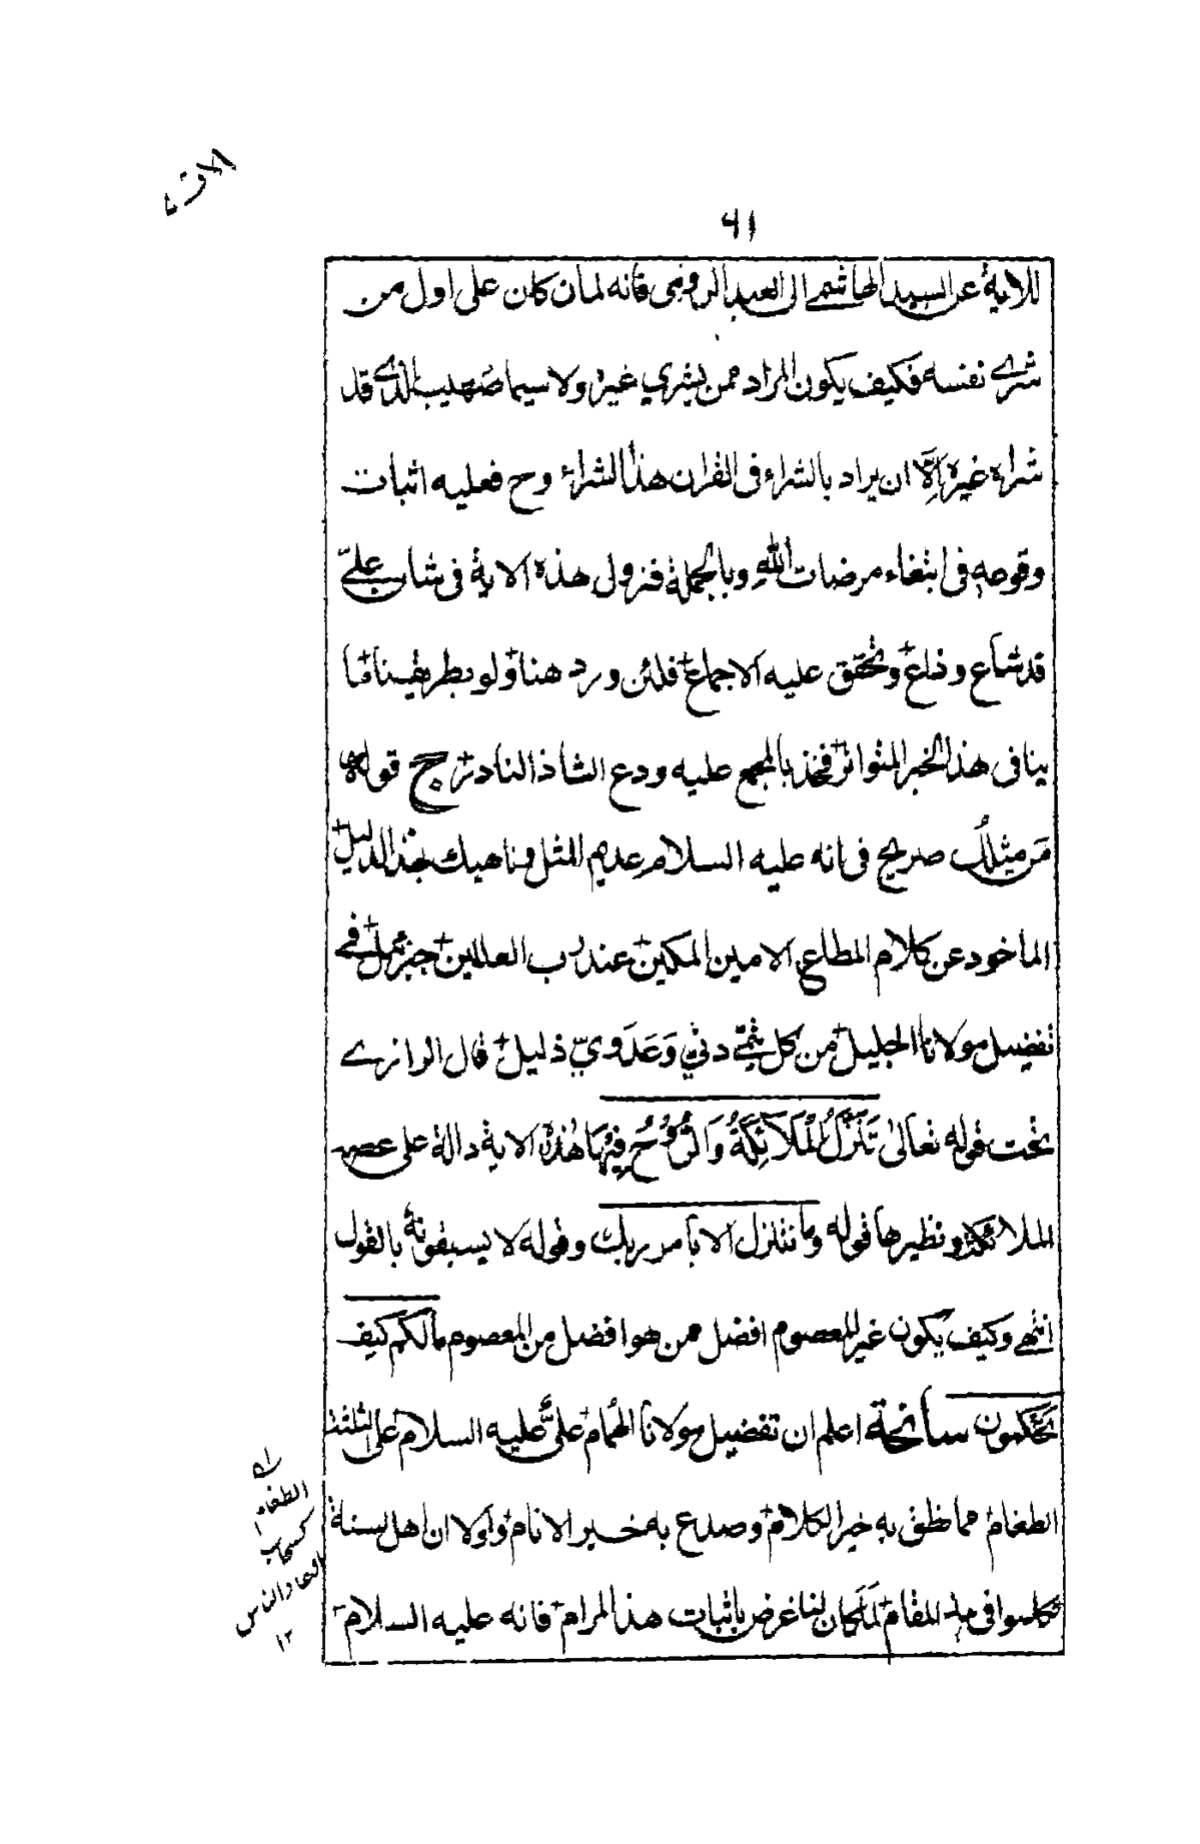 ٦١
للاية عن السيد الهاشمى الى العبد الرومى فانه لما ن كان على اول من
شرى نفسه فكيف يكون المراد ممن يشري غيره ولا سيما صَهيب الذى قد
شراه غيره اِلاَّ ان يراد بالشراء فى القران هذا الشراء وح فعليه اثبات
وقوعه فى ابتغاء مرضات الله وبالجملة فنزول هذه الاية فى شان علىّ
قد شاع وذاع وتحقق عليه الاجماع فلئن ورد هنا ولو بطريقينا ما
ينافى هذا الخبر المتواتر فخذ بالمجمع عليه ودع الشاذ النادر حج قوله
مَن مثلُك صريح فى انه عليه السلام عديم المثل وناهيك بهذا الدليل
الماخود عن كلام المطاع الامين المكين عند رب العالمين جبرئيل فى
تفضيل مولانا الجليل من كل تيمّى دنيّ وعَدَويّ ذليل قال الرازى
تحت قوله تعالىٰ تَنَزَّلُ الْمَلَآئِكَةُ وَالرُّوْحُ فِيْهَا هٰذه الاية دالة على عصمة
الملائكة ونظيرها قوله وما نتنزل الا بامر ربك وقوله لا يسبقونه بالقول
انتهى وكيف يكون غير المعصوم افضل ممن هو افضل من المعصوم مالكم كيف
تحكمون سانحة اعلم ان تفضيل مولانا الهُمام علىّ عليه السلام على الثلثة
الطغام مما نطق به خير الكلام وصدع به خير الانام ولولا ان اهل السنة
تكلموا فى هذا المقام لَمَا كان لنا غرض باثبات هذا المرام فانه عليه السلام
الطغام
كسحاب
اوغاد الناس
١٢